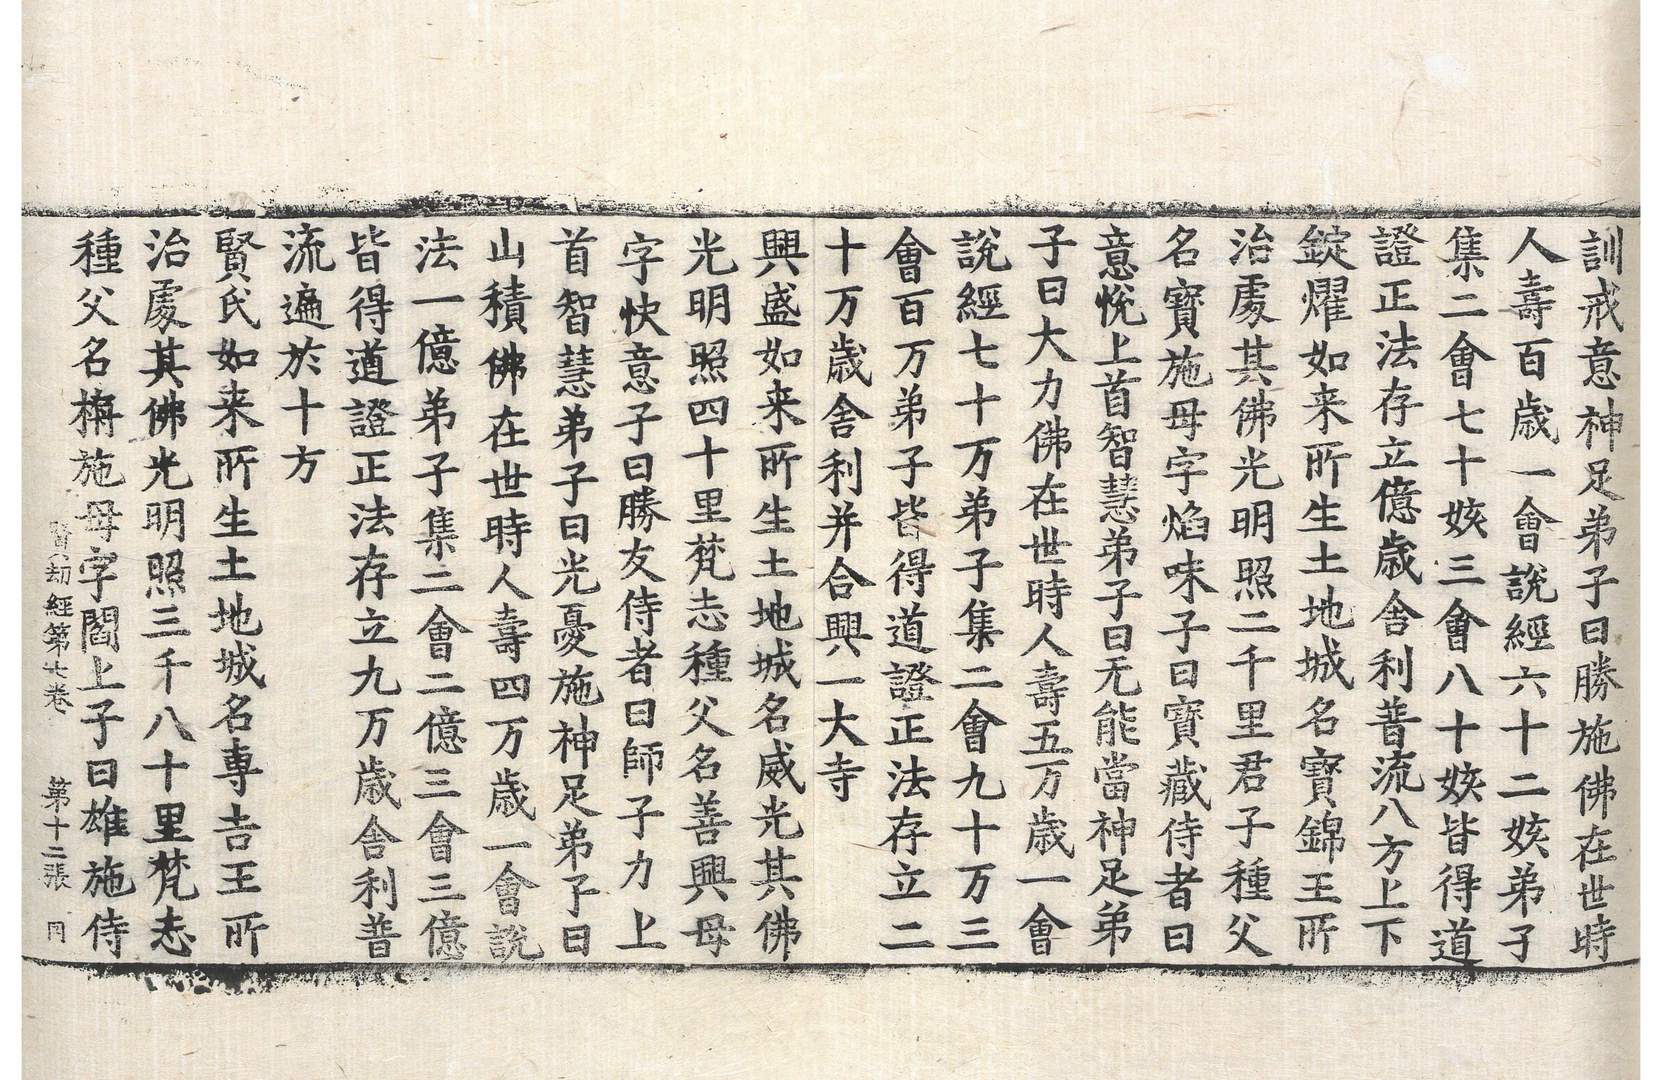 訓戒意神足弟子曰勝施佛在世時
人壽百歲一會說經六十二姟弟子
集二會七十姟三會八十姟皆得道
證正法存立億歲舍利普流八方上下
錠燿如来所生土地城名寶錦王所
治處其佛光明照二千里君子種父
名寶施母字焰味子曰寶藏侍者曰
意悅上首智慧弟子曰无能當神足弟
子曰大力佛在世時人壽五万歲一會
說經七十万弟子集二會九十万三
會百万弟子皆得道證正法存立二
十万歲舍利并合興一大寺
興盛如来所生土地城名威光其佛
光明照四十里梵志種父名善興母
字快意子曰勝友侍者曰師子力上
首智慧弟子曰光憂施神足弟子曰
山積佛在世時人壽四万歲一會說
法一億弟子集二會二億三會三億
皆得道證正法存立九万歲舍利普
流遍於十方
賢氏如来所生土地城名專吉王所
治處其佛光明照三千八十里梵志
種父名施母字閻上子曰雄施侍
賢劫經第七卷 第十二張 冈